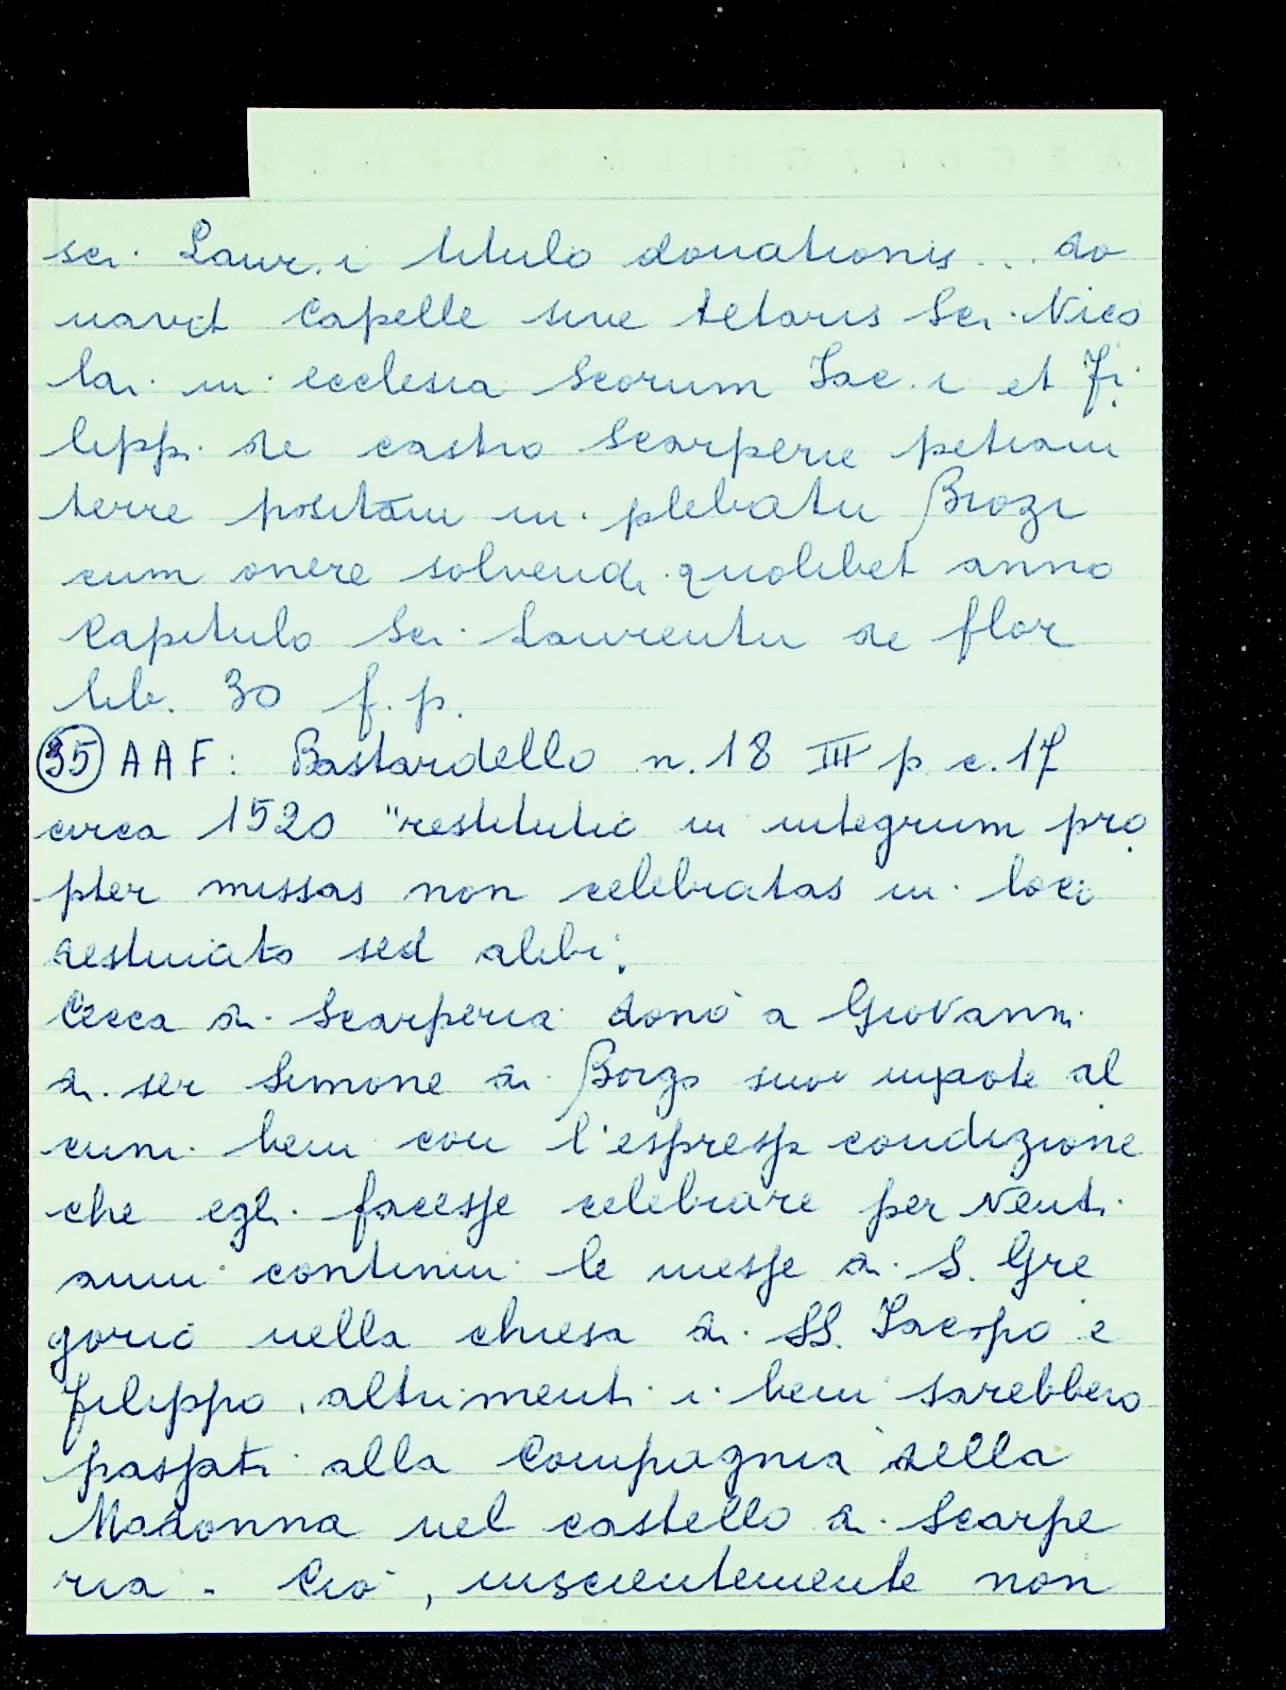 sci. Laur.i titulo donationis... do
navit Capelle sive altaris Sci. Nico
lai in ecclesia Scorum Iac.i et Fi
lippi de castro Scarperie petiam
terre positam in plebatu Brozi
cum onere solvendi quolibet anno
Capitulo Sci. Laurentii de flor
lib. 30 f.p.
35 AAF: Bastardello n.18 III p c.17
circa 1520 "restitutio in integrum pro
pter missas non celebratas in loco
destinato sed alibi.
Cecca di Scarperia donò a Giovanni
di ser Simone di Borgo suo nipote al
cuni beni con l'espressa condizione
che egli facesse celebrare per venti
anni continui le messe di S. Gre
gorio nella chiesa di SS. Iacopo e
Filippo, altrimenti i beni sarebbero
passati alla Compagnia della
Madonna nel castello di Scarpe
ria. Ciò, inscientemente non